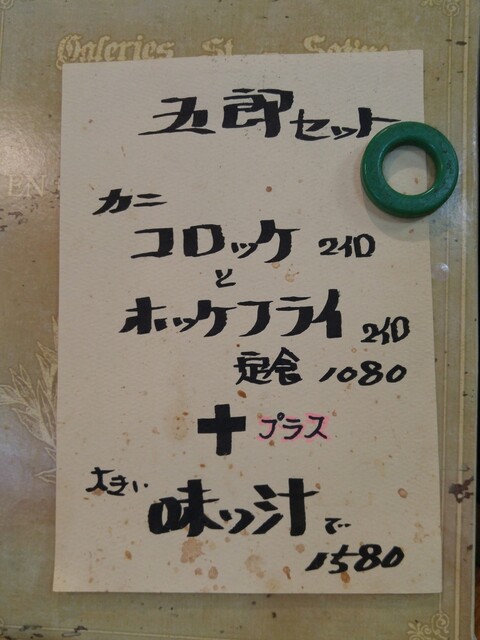 Galeries St
EN
五郎セット
カニ
コロッケ 2イロ
と
ホッケフライ 2イロ
定食 1080
＋ プラス
大きい
味ッ汁で
1580